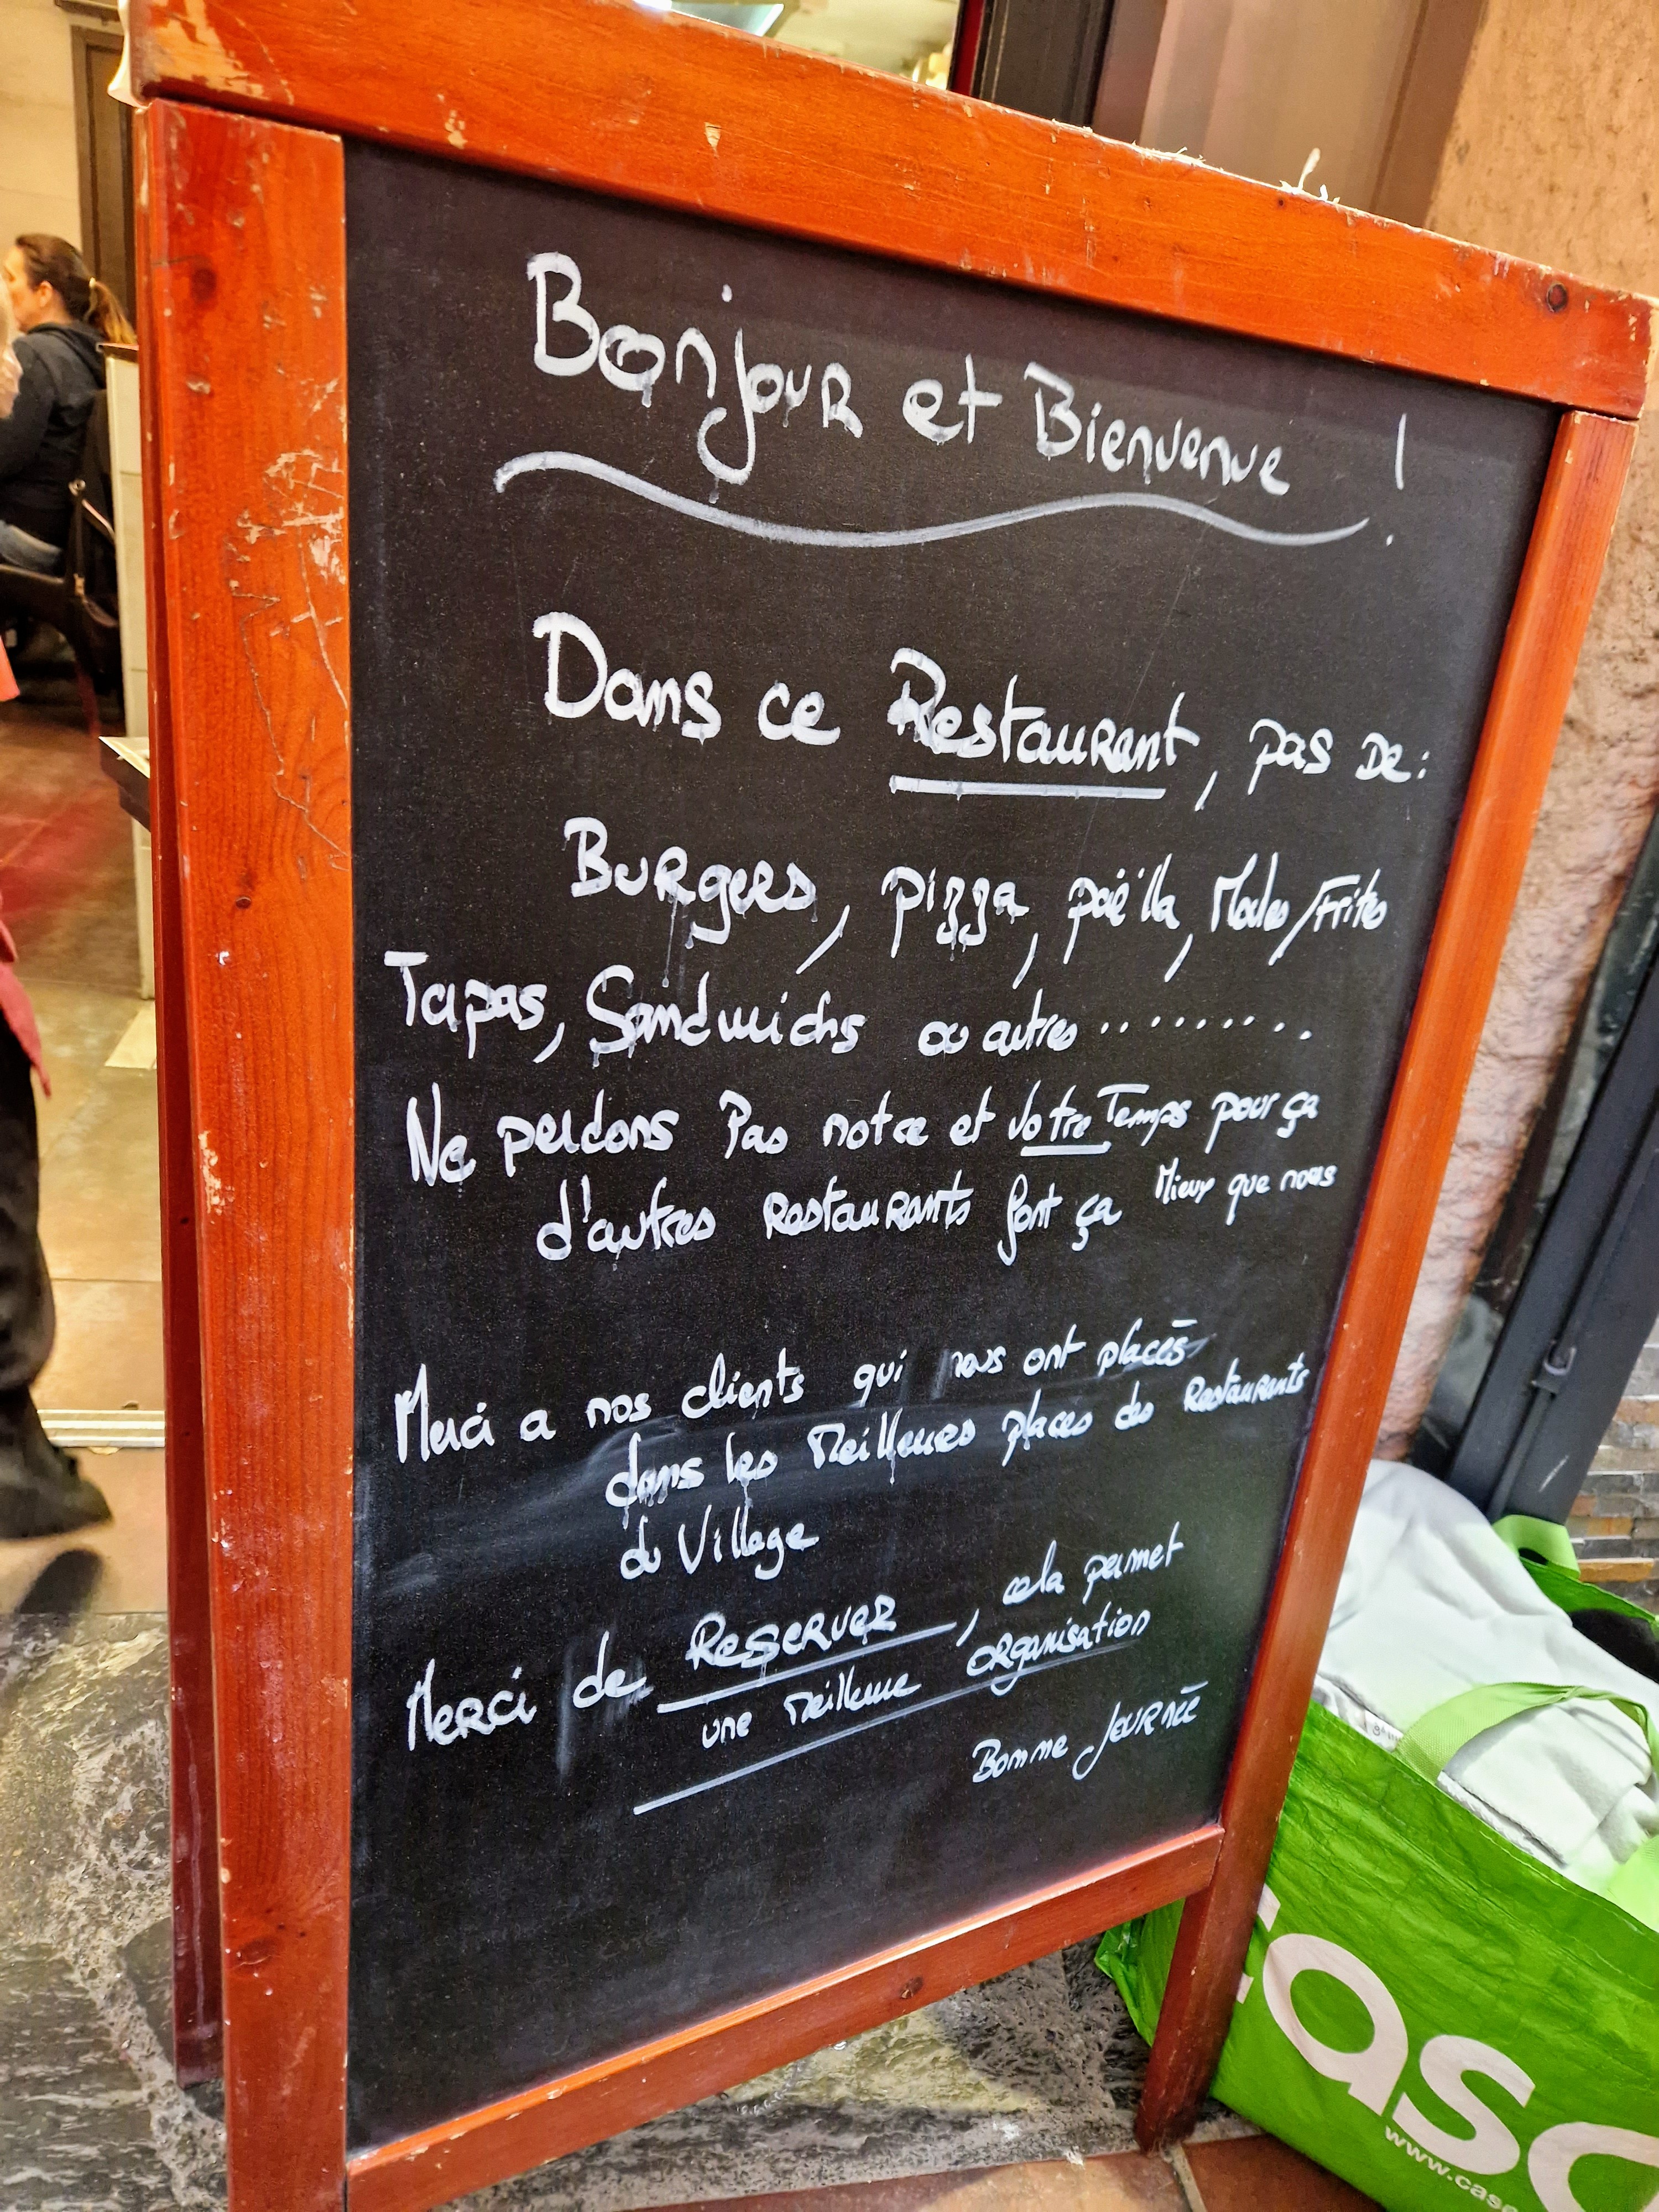 Bonjour et Bienvenue !
Dans ce Restaurant, pas de :
Burgers, pizza, paëlla, Moules/Frites
Tapas, Sandwichs ou autres .........
Ne perdons Pas notre et votre Temps pour ça
d'autres restaurants font ça Mieux que nous
Merci a nos clients qui nous ont placés
dans les Meilleures places des Restaurants
du Village
Merci de Reserver, cela permet
une meilleure organisation
Bonne Journée
Casi
www.cas